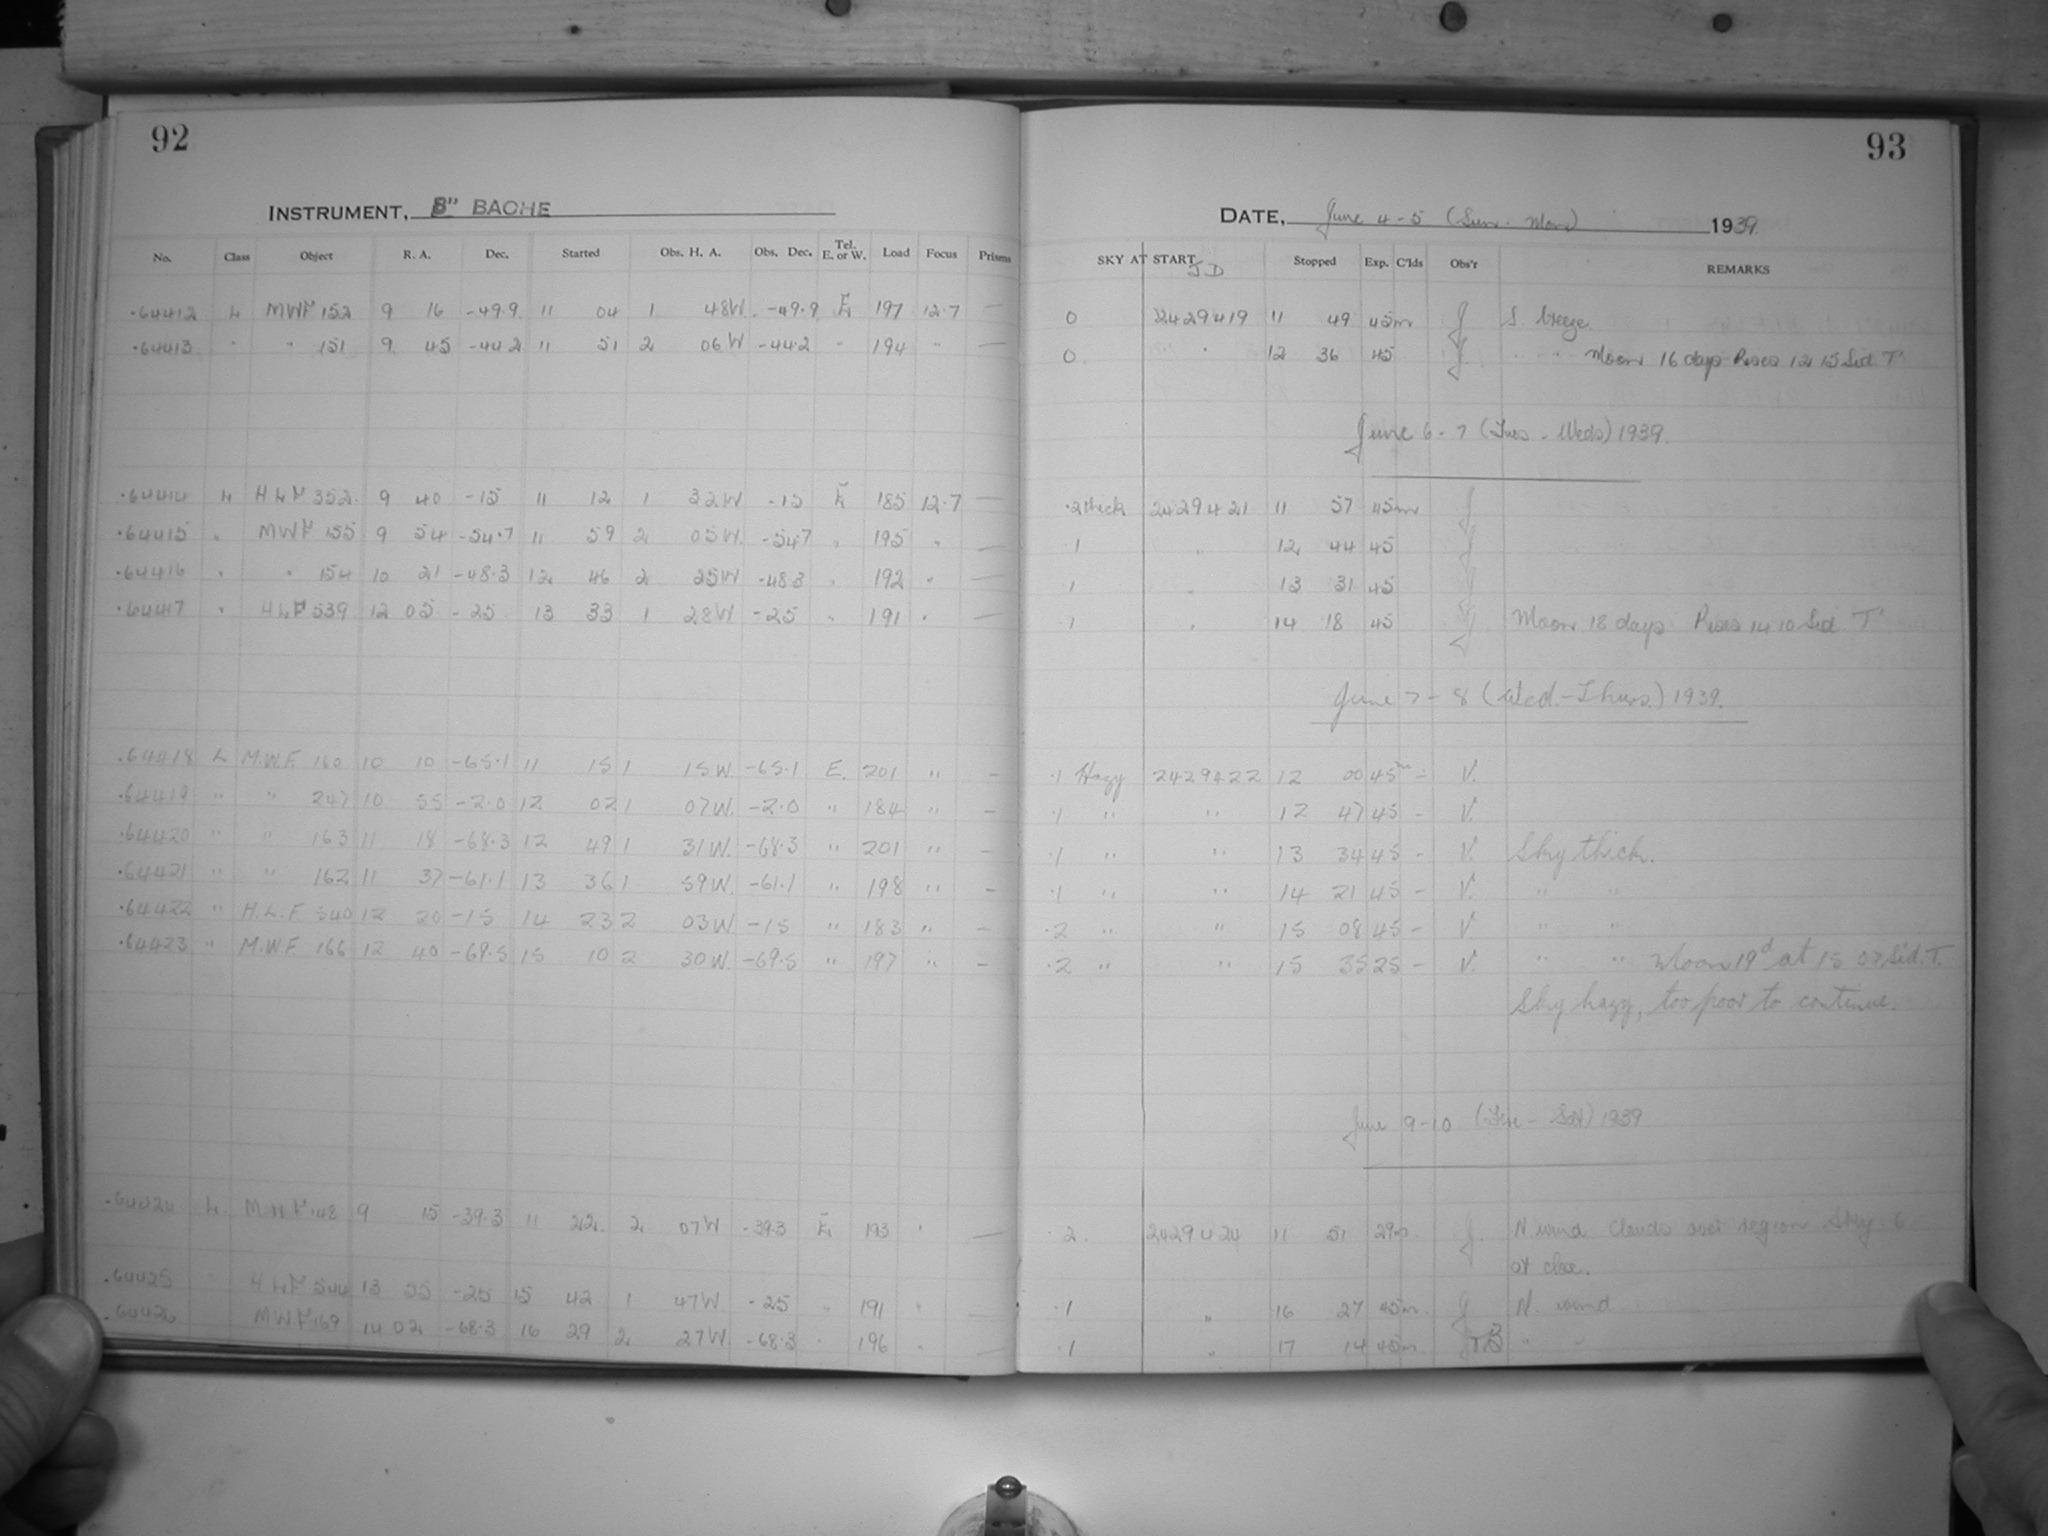 92
INSTRUMENT, 8" BACHE
No. Class Object R. A. Dec. Started Obs. H. A. Obs. Dec. Tel. E. or W. Load Focus Prisms
.64412 L MWF 152 9 16 -49.9 11 04 1 48W. -49.9 E 197 12.7 —
.64413 " " 151 9 45 -44.2 11 51 2 06W -44.2 " 194 " —
.64414 L HLF 352 9 40 -15 11 12 1 32W -15 E 185 12.7 —
.64415 " MWF 155 9 54 -54.7 11 59 2 05W -54.7 " 195 " —
.64416 " " 154 10 21 -48.3 12 46 2 25W -48.3 " 192 " —
.64417 " HLF 539 12 05 -25 13 33 1 28W -25 " 191 " —
.64418 L M.W.F. 160 10 10 -65.1 11 15 1 15W -65.1 E. 201 " —
.64419 " " 247 10 55 -2.0 12 02 1 07W. -2.0 " 184 " —
.64420 " " 163 11 18 -68.3 12 49 1 31W. -68.3 " 201 " —
.64421 " " 162 11 37 -61.1 13 36 1 59W. -61.1 " 198 " —
.64422 " H.L.F. 540 12 20 -15 14 23 2 03W -15 " 183 " —
.64423 " M.W.F. 166 12 40 -69.5 15 10 2 30W. -69.5 " 197 " —
.64424 L. MWF 148 9 15 -39.3 11 22 2 07W -39.3 E 193 " —
.64425 " HLF 544 13 55 -25 15 42 1 47W -25 " 191 " —
.64426 MWF 169 14 02 -68.3 16 29 2 27W. -68.3 " 196 " —
93
DATE, June 4-5 (Sun. Mon) 1939.
SKY AT START JD Stopped Exp. C'lds Obs'r REMARKS
0 2429419 11 49 45m J S. breeze
0 " " 12 36 45 J " " Moon 16 days Rises 12 15 Sid. T.
June 6-7 (Tues - Weds) 1939.
.2 thick 2429421 11 57 45m J
.1 " 12 44 45 J
.1 " 13 31 45 J
.1 " 14 18 45 J Moon 18 days Rises 14 10 Sid. T.
June 7-8 (Wed.-Thurs.) 1939.
.1 Hazy 2429422 12 00 45m — V.
.1 " " 12 47 45 — V.
.1 " " 13 34 45 — V. Sky thick.
.1 " " 14 21 45 — V. " "
.2 " " 15 08 45 — V. " "
.2 " " 15 35 25 — V. " " Moon 19d at 15 07 Sid. T.
Sky hazy, too poor to continue.
June 9-10 (Fri - Sat) 1939
.2 2429424 11 51 29m J. N. wind Clouds over region Sky .6
at close.
.1 " 16 27 45m J N. wind
.1 " 17 14 45m "